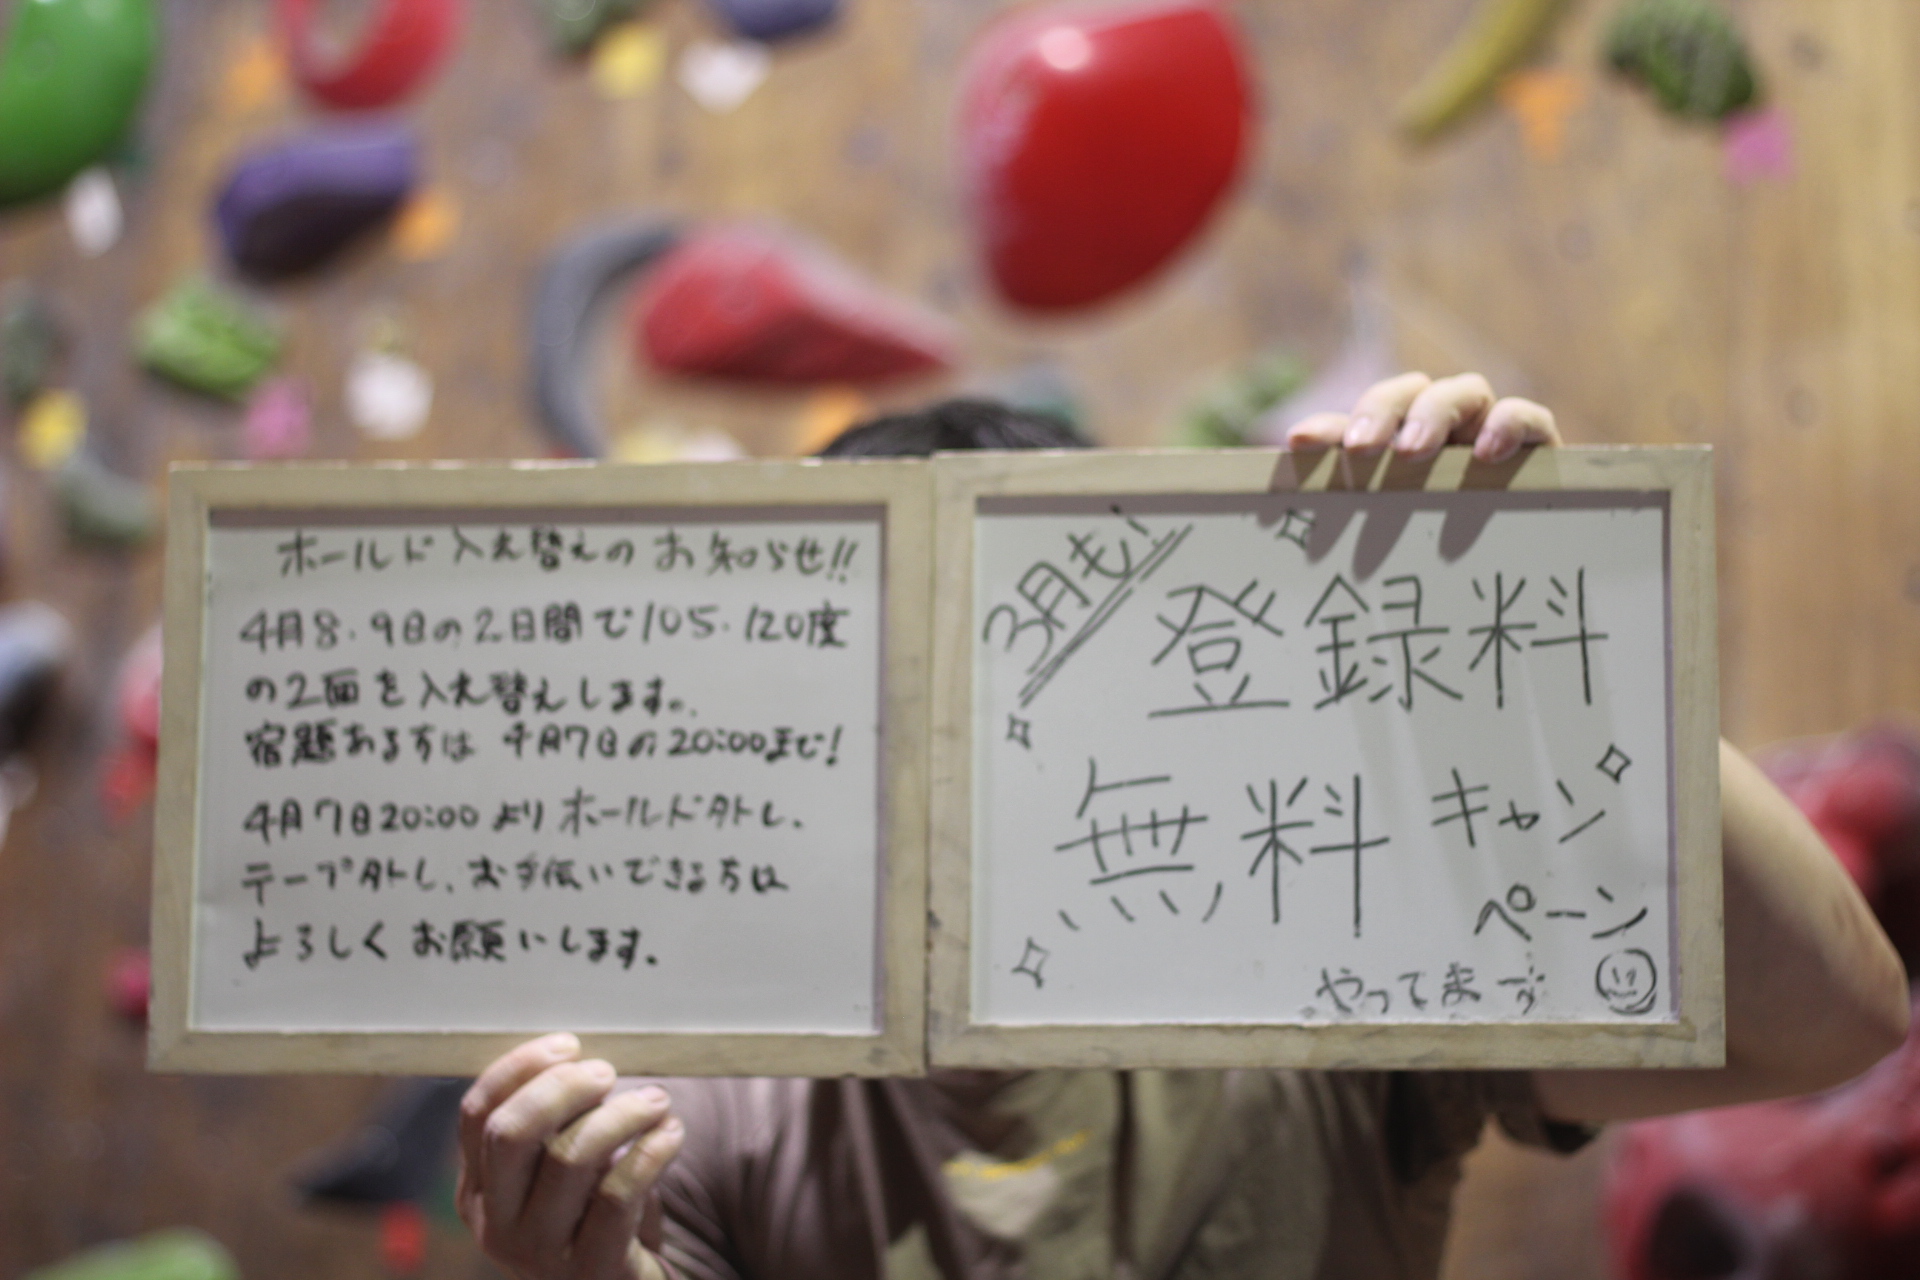 ホールド入れ替えのお知らせ!!
4月8.9日の2日間で105.120度
の2面を入れ替えします。
宿題ある方は 4月7日の20:00まで!
4月7日20:00よりホールド外し、
テープ外し、お手伝いできる方は
よろしくお願いします。
3月も!
登録料
無料 キャン
ペーン
やってまーす